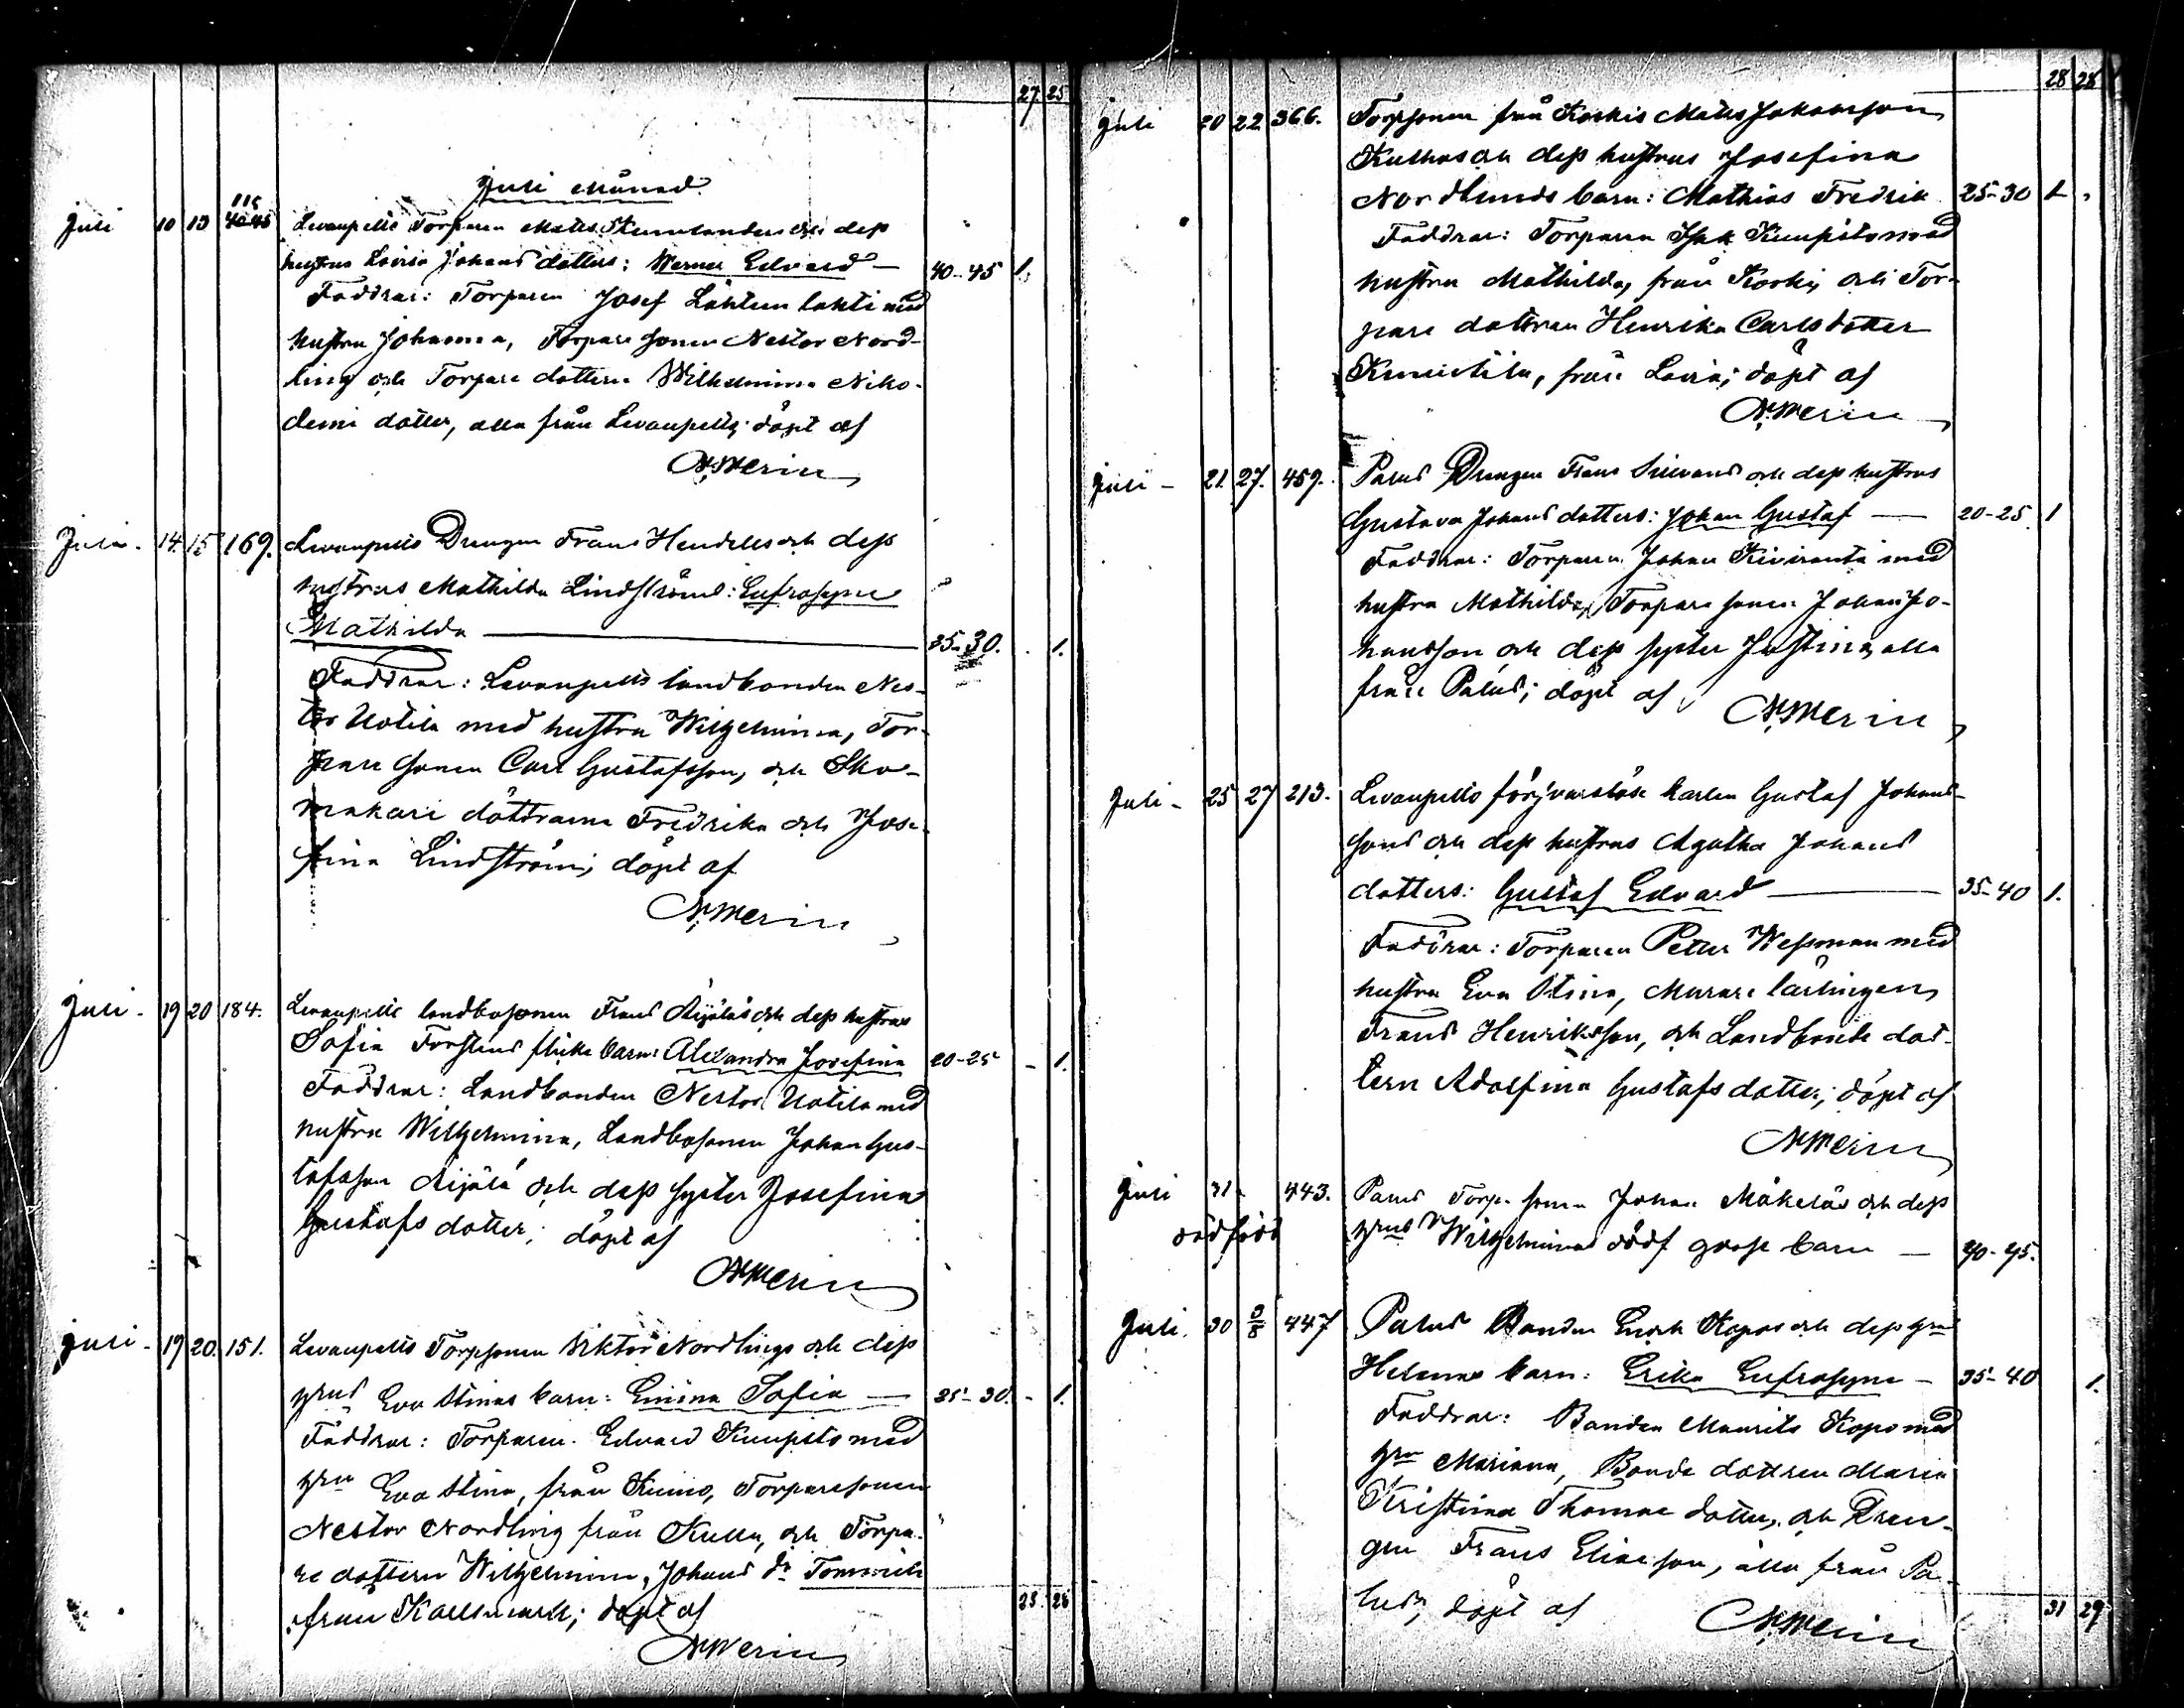 27. 25
Juli Månad.
115
Juli 10 13 40-45 Levanpelto Torparen Mats och dess
hustrus Lovisa Johans dotters: Werner Edvard — 40-45 1.
Faddrar: Torparen Josef Lähteen lahti med
hustru Johanna, Torpare sonen Nestor Nord-
ling och Torpare dottern Wilhelmina Niko-
demi dotter, alla från Levanpelto; döpt af
N. Merin
Juli - 14. 15 169. Levanpelto Drengen Frans Hendells och dess
hustrus Mathilda Lindströms: Eufrosyne
Mathilda — 25-30. 1.
Faddrar: Levanpelto landbonden Nes-
tor Uotila med hustru Wilhelmina, Tor-
pare sonen Carl Gustafsson, och Sko-
makare döttrarne Fredrika och Jose-
fina Lindström; döpt af
N. Merin
Juli - 19 20 184. Levanpelto landbosonen Frans Äijäläs och dess hustrus
Sofia flicke barn: Alexandra Josefina 20-25 - 1.
Faddrar: Landbonden Nestor Uotila med
hustru Wilhelmina, Landbosonen Johan Gus-
tafsson Äijälä och dess syster Josefina
Gustafs dotter; döpt af
N. Merin
Juli - 19 20. 151. Levanpelto Torpsonen Viktor Nordlings och dess
hrus Eva Stinas barn: Emina Sofia — 25-30. - 1.
Faddrar: Torparen Edvard Kuupisto med
hru Eva Stina, från Kumo, Torparesonen
Nestor Nordling från Kulla, och Torpa-
re dottern Wilhelmina, Johans dr
från Kallmark; döpt af 28. 28
N. Merin
28 28
Juli 20 22 366. Torpsonen från Koskis Mats Jakobsson
och dess hustrus Josefina
Nordlunds barn: Mathias Fredrik 25-30 1
Faddrar: Torparen Isak Kuupisto med
hustru Mathilda, från Koski, och Tor-
pare dottren Henrika Carlsdotter
från döpt af
N. Merin
Juli - 21. 27. 459. Palus Drengen Frans och dess hustrus
Gustava Johans dotters: Johan Gustaf — 20-25 1
Faddrar: Torparen Johan Kiviranta med
hustru Mathilda, Torpare sonen Johan Jo-
hansson och dess syster Justina, alla
från Palus; döpt af
N. Merin
Juli - 25 27 213. Levanpelto försvarslöse karlen Gustaf Johans-
sons och dess hustrus Agatha Johans
dotters: Gustaf Edvard — 35-40 1.
Faddrar: Torparen Petter Wessman med
hustru Eva Stina, Murare lärlingen
Frans Henriksson, och Landbonde dot-
tern Adolfina Gustafs dotter; döpt af
N. Merin
Juli 31 443. Palus Torp. sonen Johan Mäkeläs och dess
dödfödd hrus Wilhelminas dödf gosse barn — 40-45.
Juli. 30 3/8 447 Palus Bonden Enok Kopos och dess hrus
Helenas barn: Erika Eufrosyne - 35-40 1.
Faddrar: Bonden Maurits Kopo med
hru Mariana, Bonde dottren Maria
Kristina Thomae dotter, och Dren-
gen Frans Eliasson, alla från Pa-
lus, döpt af 31 29
N. Merin